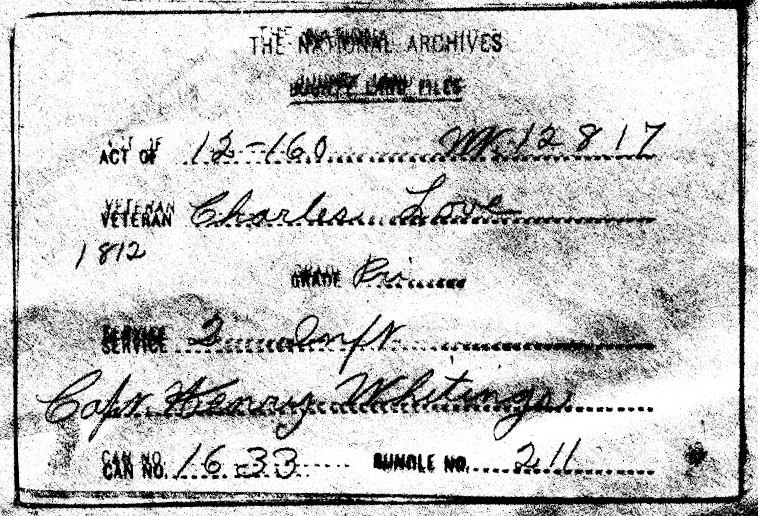 THE NATIONAL ARCHIVES
BOUNTY LAND FILES
ACT OF 12-160 Wt. 12817
VETERAN Charles Love
1812
GRADE Pri
SERVICE 2 Inft.
Capt. Henry Whitings
CAN NO. 1633 BUNDLE NO. 211